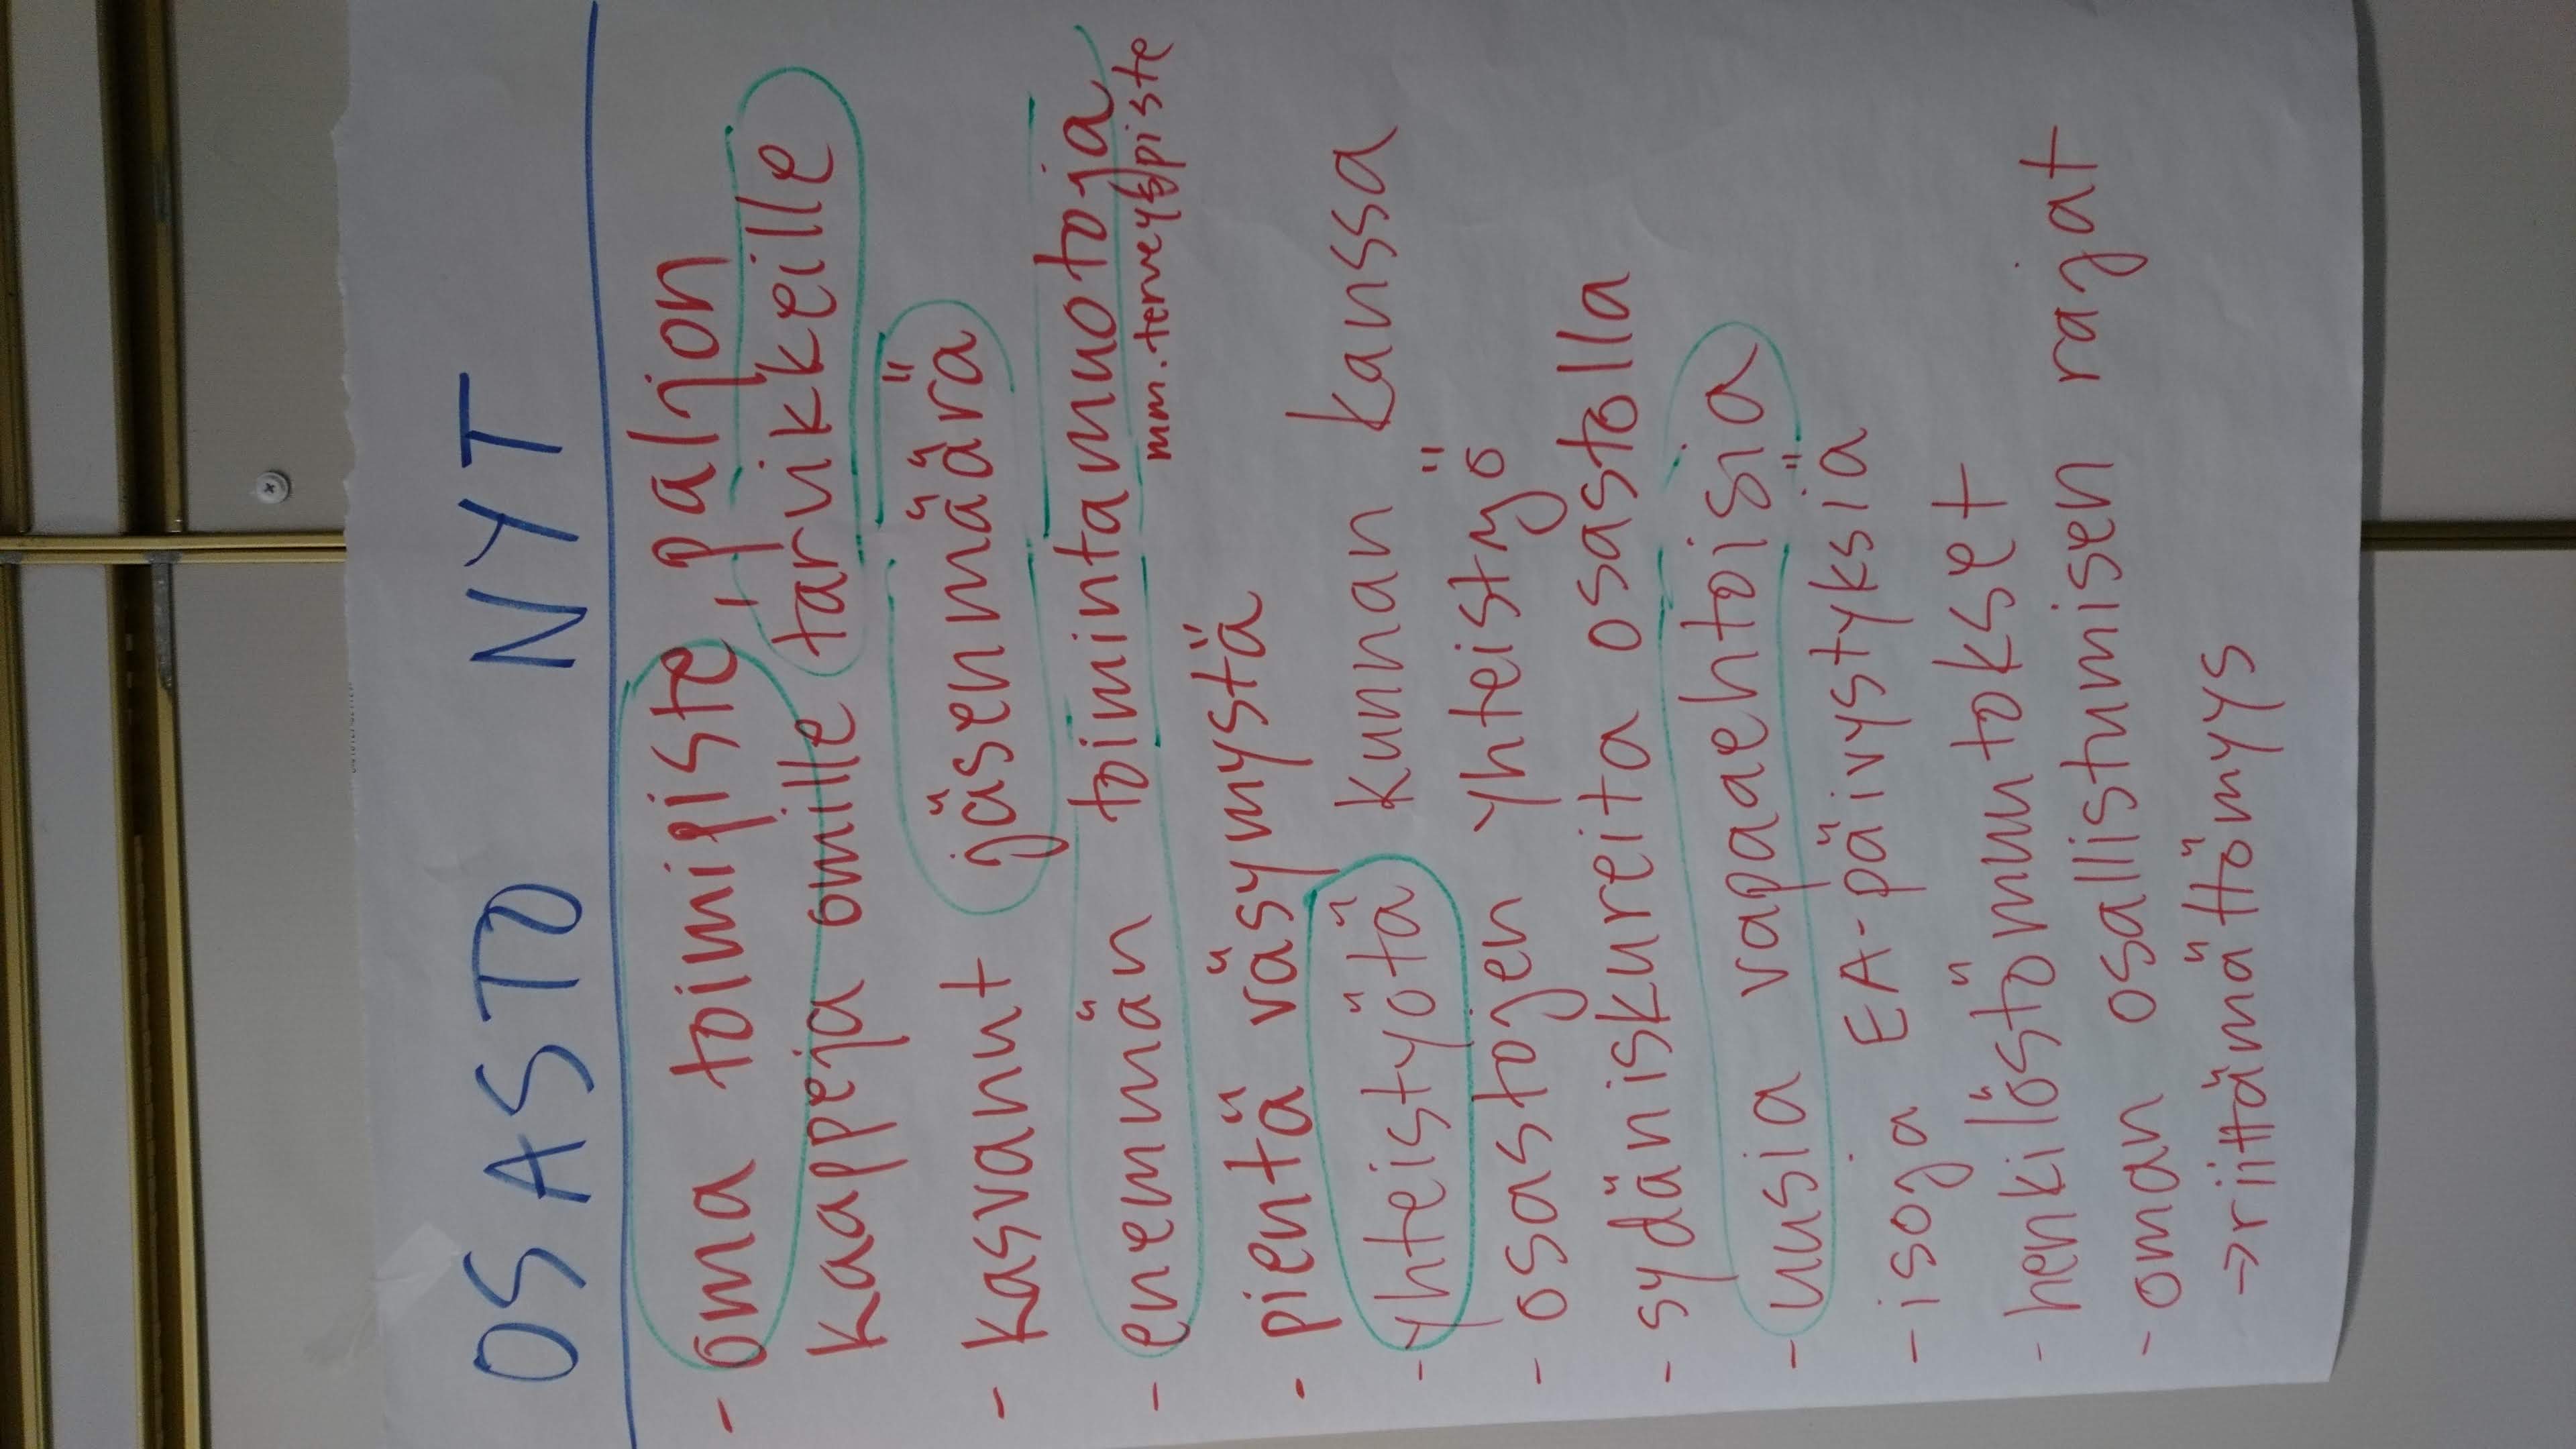 OSASTO NYT
- oma toimipiste, paljon
kaappeja omille tarvikkeille
- kasvanut jäsenmäärä
- enemmän toimintamuotoja
mm. terveyspiste
- pientä väsymystä
- yhteistyötä kunnan kanssa
- osastojen yhteistyö
- sydäniskureita osastolla
- uusia vapaaehtoisia
- isoja EA-päivystyksiä
- henkilöstömuutokset
- oman osallistumisen rajat
->riittämättömyys